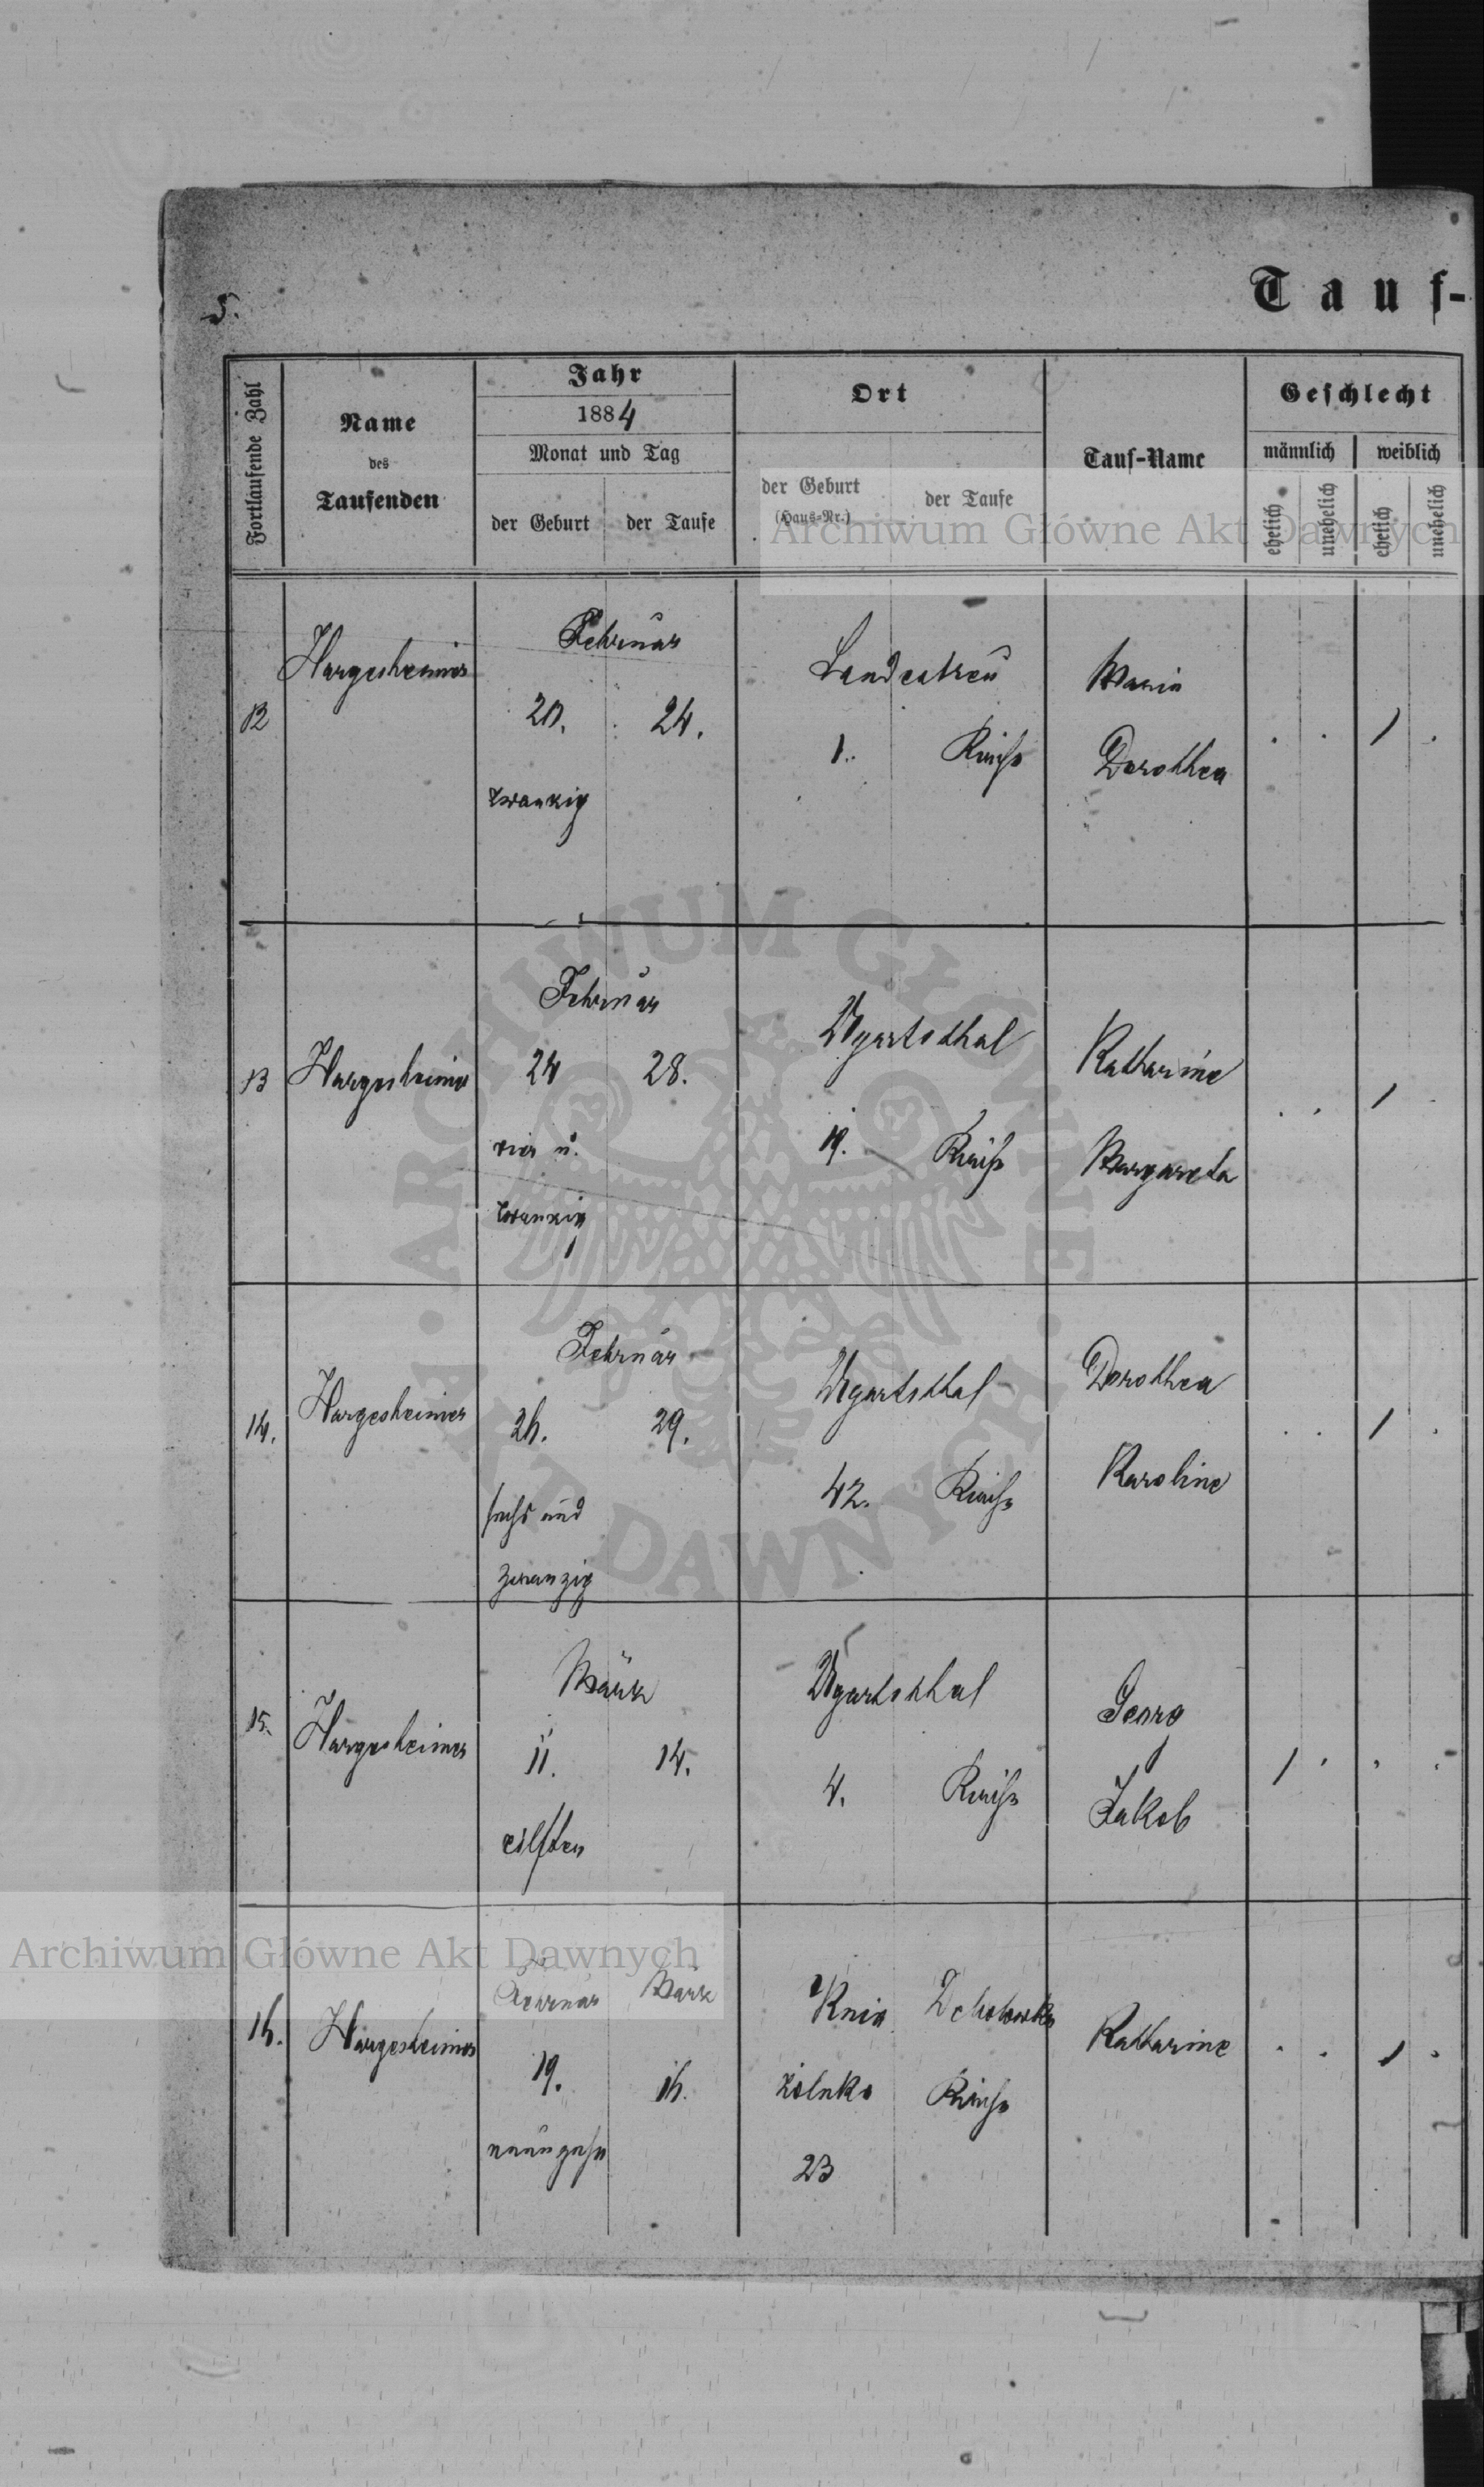 5.
Tauf-
Fortlaufende Zahl
Name
des
Taufenden
Jahr
1884
Monat und Tag
der Geburt
der Taufe
Ort
der Geburt
(Haus-Nr.)
der Taufe
Tauf-Name
Geschlecht
männlich
weiblich
ehelich
unehelich
ehelich
unehelich
Archiwum Główne Akt Dawnych
12
Hargesheimer
Februar
20. 24.
zwanzig
Landestreu
1. Kirche
Maria
Dorothea
1
13
Hargesheimer
Februar
24 28.
vier u.
zwanzig
Ugartsthal
19. Kirche
Katharine
Margareta
1
14.
Hargesheimer
Februar
26. 29.
sechs und
zwanzig
Ugartsthal
42. Kirche
Dorothea
Karoline
1
15.
Hargesheimer
März
11. 14.
eilften
Ugartsthal
4. Kirche
Georg
Jakob
1
Archiwum Główne Akt Dawnych
16.
Hargesheimer
Februar März
19. 16.
neunzehn
Knia
zioluka Kirche
23
Katharine
1
ARCHIWUM GŁÓWNE AKT DAWNYCH